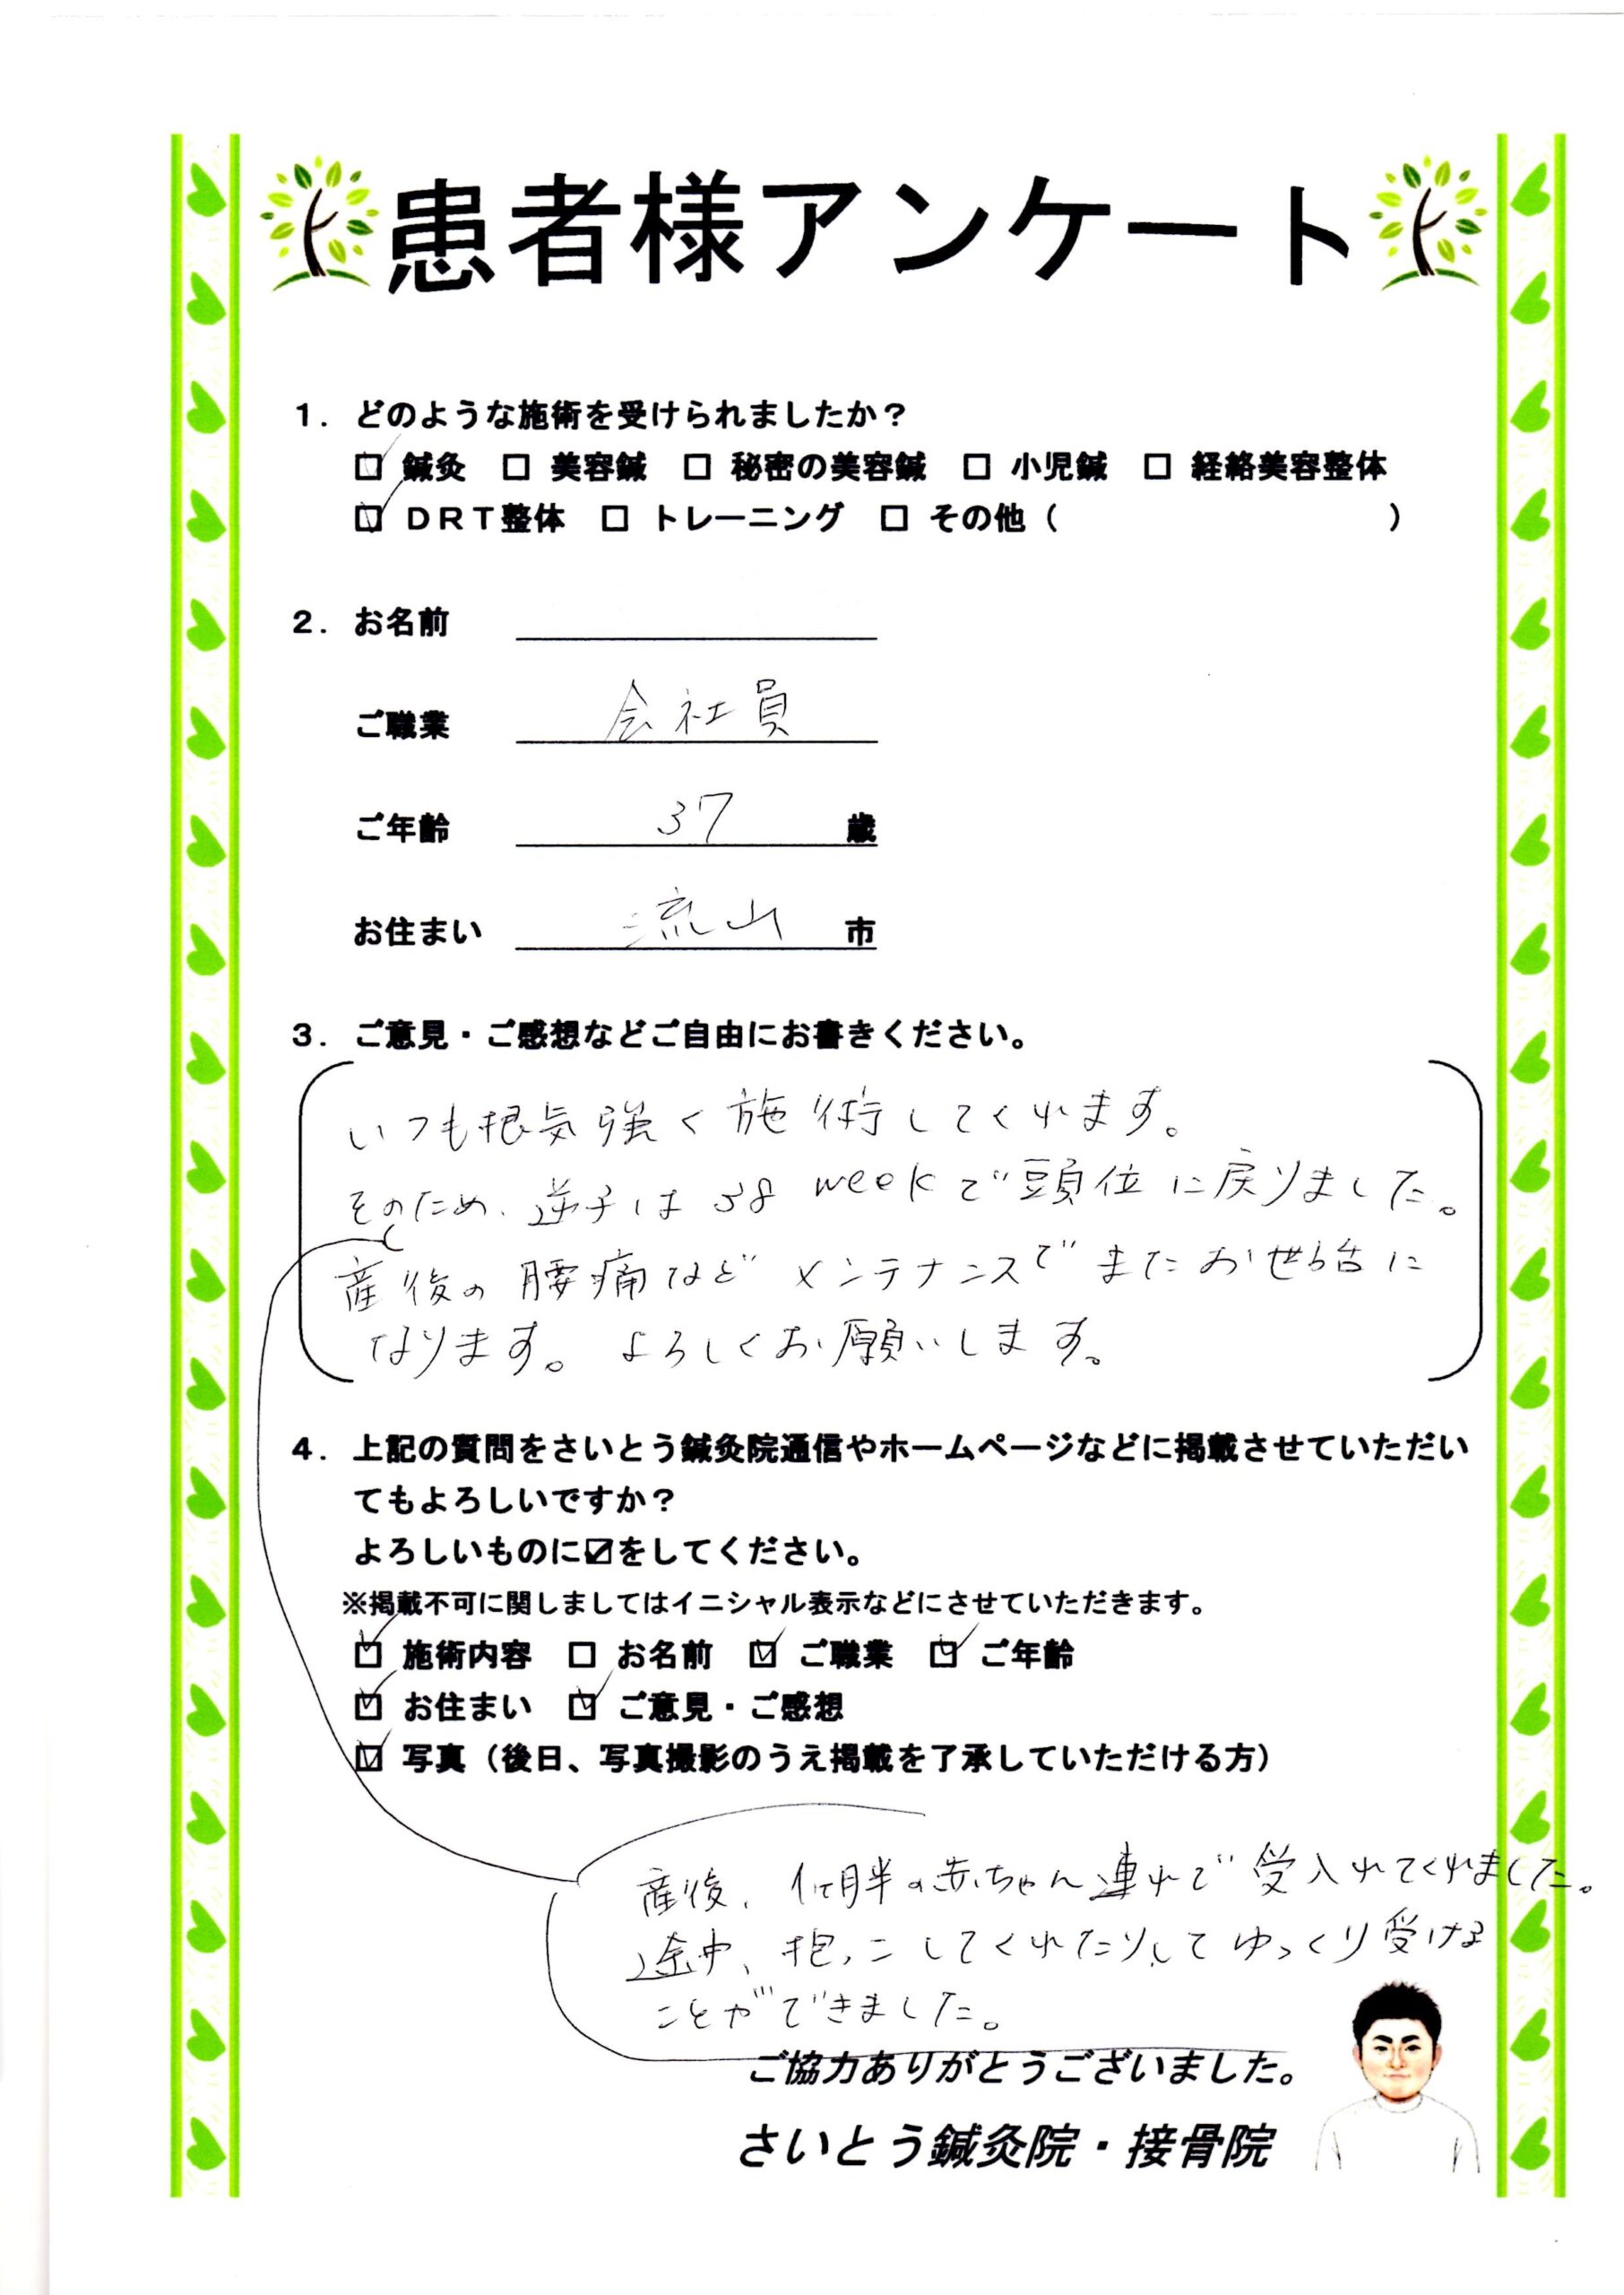 患者様アンケート
1. どのような施術を受けられましたか？
☑ 鍼灸 □ 美容鍼 □ 秘密の美容鍼 □ 小児鍼 □ 経絡美容整体
☑ DRT整体 □ トレーニング □ その他（ ）
2. お名前
ご職業 会社員
ご年齢 37 歳
お住まい 流山 市
3. ご意見・ご感想などご自由にお書きください。
いつも根気強く施術してくれます。
そのため、逆子は 38 weekで頭位に戻りました。
産後の腰痛など メンテナンスで またお世話に
なります。よろしくお願いします。
4. 上記の質問をさいとう鍼灸院通信やホームページなどに掲載させていただい
てもよろしいですか？
よろしいものに☑をしてください。
※掲載不可に関しましてはイニシャル表示などにさせていただきます。
☑ 施術内容 □ お名前 ☑ ご職業 ☑ ご年齢
☑ お住まい ☑ ご意見・ご感想
☑ 写真（後日、写真撮影のうえ掲載を了承していただける方）
産後、1ヶ月半の赤ちゃん連れで受入れてくれました。
途中、抱っこしてくれたりして ゆっくり受ける
ことができました。
ご協力ありがとうございました。
さいとう鍼灸院・接骨院